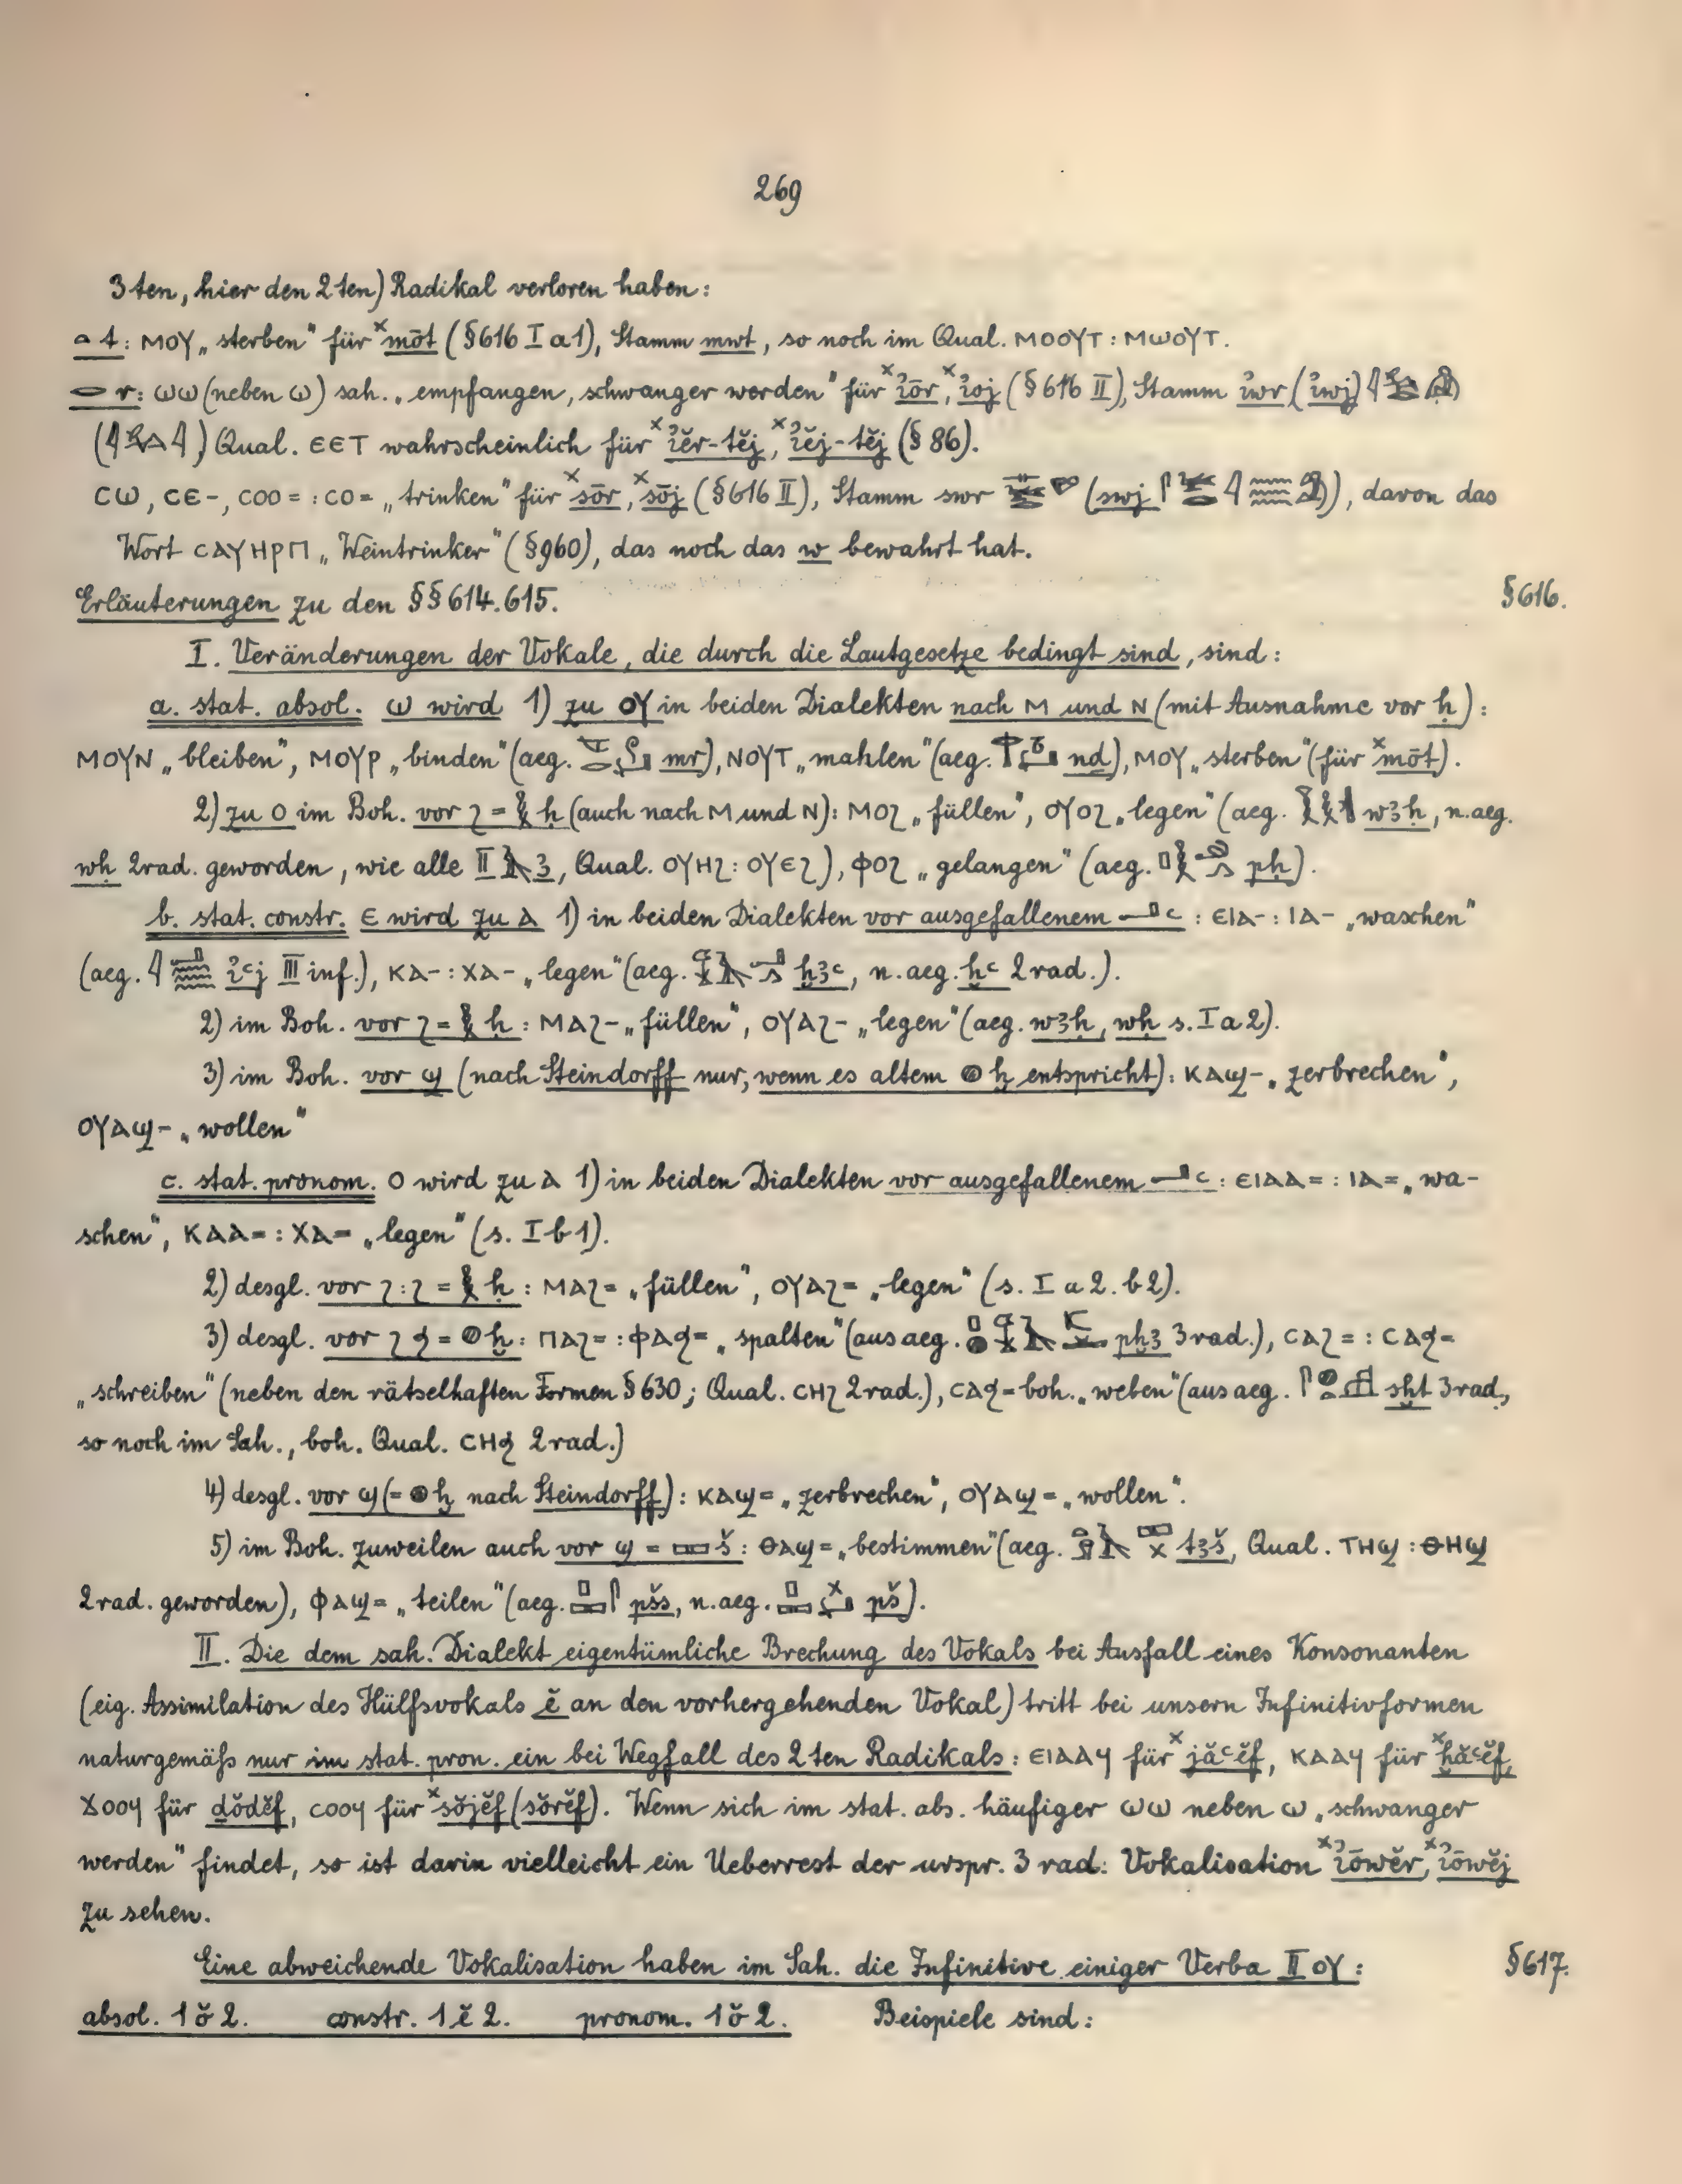 269
3ten, hier den 2ten) Radikal verloren haben:
t: ⲙⲟⲩ „sterben“ für ˣmōt (§ 616 I a 1), Stamm mwt, so noch im Qual. ⲙⲟⲟⲩⲧ : ⲙⲱⲟⲩⲧ.
r: ⲱⲱ (neben ⲱ) sah. „empfangen, schwanger werden“ für ˣꞽōr, ˣꞽoj (§ 616 II), Stamm ꞽwr (ꞽwj)
Qual. ⲉⲉⲧ wahrscheinlich für ˣꞽĕr-tĕj, ˣꞽĕj-tĕj (§ 86).
ⲥⲱ, ⲥⲉ-, ⲥⲟⲟ= : ⲥⲟ= „trinken“ für ˣsōr, ˣsōj (§ 616 II), Stamm swr (swj), davon das
Wort ⲥⲁⲩⲏⲣⲡ „Weintrinker“ (§ 960), das noch das w bewahrt hat.
Erläuterungen zu den §§ 614. 615.
§ 616.
I. Veränderungen der Vokale, die durch die Lautgesetze bedingt sind, sind:
a. stat. absol. ⲱ wird 1) zu ⲟⲩ in beiden Dialekten nach ⲙ und ⲛ (mit Ausnahme vor ḥ):
ⲙⲟⲩⲛ „bleiben“, ⲙⲟⲩⲣ „binden“ (aeg. mr), ⲛⲟⲩⲧ „mahlen“ (aeg. nḏ), ⲙⲟⲩ „sterben“ (für ˣmōt).
2) zu ⲟ im Boh. vor ϩ = ḥ (auch nach ⲙ und ⲛ): ⲙⲟϩ „füllen“, ⲟⲩⲟϩ „legen“ (aeg. wꜣḥ, n.aeg.
wḥ 2rad. geworden, wie alle II ꜣ, Qual. ⲟⲩⲏϩ : ⲟⲩⲉϩ), ⲫⲟϩ „gelangen“ (aeg. pḥ).
b. stat. constr. ⲉ wird zu ⲁ 1) in beiden Dialekten vor ausgefallenem ꜥ : ⲉⲓⲁ- : ⲓⲁ- „waschen“
(aeg. ꞽꜥj III inf.), ⲕⲁ- : ⲭⲁ- „legen“ (aeg. ẖꜣꜥ, n.aeg. ẖꜥ 2rad.).
2) im Boh. vor ϩ = ḥ : ⲙⲁϩ- „füllen“, ⲟⲩⲁϩ- „legen“ (aeg. wꜣḥ, wḥ s. I a 2).
3) im Boh. vor ϣ (nach Steindorff nur, wenn es altem ḫ entspricht): ⲕⲁϣ- „zerbrechen“,
ⲟⲩⲁϣ- „wollen“
c. stat. pronom. ⲟ wird zu ⲁ 1) in beiden Dialekten vor ausgefallenem ꜥ : ⲉⲓⲁⲁ= : ⲓⲁ= „wa-
schen“, ⲕⲁⲁ= : ⲭⲁ= „legen“ (s. I b 1).
2) desgl. vor ϩ : ϩ = ḥ : ⲙⲁϩ= „füllen“, ⲟⲩⲁϩ= „legen“ (s. I a 2. b 2).
3) desgl. vor ϩ ϧ = ḫ : ⲡⲁϩ= : ⲫⲁϧ= „spalten“ (aus aeg. pẖꜣ 3rad.), ⲥⲁϩ= : ⲥⲁϧ=
„schreiben“ (neben den rätselhaften Formen § 630; Qual. ⲥⲏϩ 2rad.), ⲥⲁϧ= boh. „weben“ (aus aeg. sḫt 3rad.,
so noch im Sah., boh. Qual. ⲥⲏϧ 2rad.)
4) desgl. vor ϣ (= ḫ nach Steindorff): ⲕⲁϣ= „zerbrechen“, ⲟⲩⲁϣ= „wollen“.
5) im Boh. zuweilen auch vor ϣ = š : ⲑⲁϣ= „bestimmen“ (aeg. tꜣš, Qual. ⲧⲏϣ : ⲑⲏϣ
2rad. geworden), ⲫⲁϣ= „teilen“ (aeg. pšs, n.aeg. pš).
II. Die dem sah. Dialekt eigentümliche Brechung des Vokals bei Ausfall eines Konsonanten
(eig. Assimilation des Hülfsvokals ĕ an den vorhergehenden Vokal) tritt bei unsern Infinitivformen
naturgemäß nur im stat. pron. ein bei Wegfall des 2ten Radikals: ⲉⲓⲁⲁϥ für ˣjăꜥĕf, ⲕⲁⲁϥ für ˣẖăꜥĕf,
ϫⲟⲟϥ für ḏŏdĕf, ⲥⲟⲟϥ für ˣsŏjĕf (sŏrĕf). Wenn sich im stat. abs. häufiger ⲱⲱ neben ⲱ „schwanger
werden“ findet, so ist darin vielleicht ein Ueberrest der urspr. 3 rad. Vokalisation ˣꞽōwĕr, ˣꞽōwĕj
zu sehen.
Eine abweichende Vokalisation haben im Sah. die Infinitive einiger Verba II ⲟⲩ :
§ 617.
absol. 1 ŏ 2. constr. 1 ĕ 2. pronom. 1 ŏ 2. Beispiele sind: